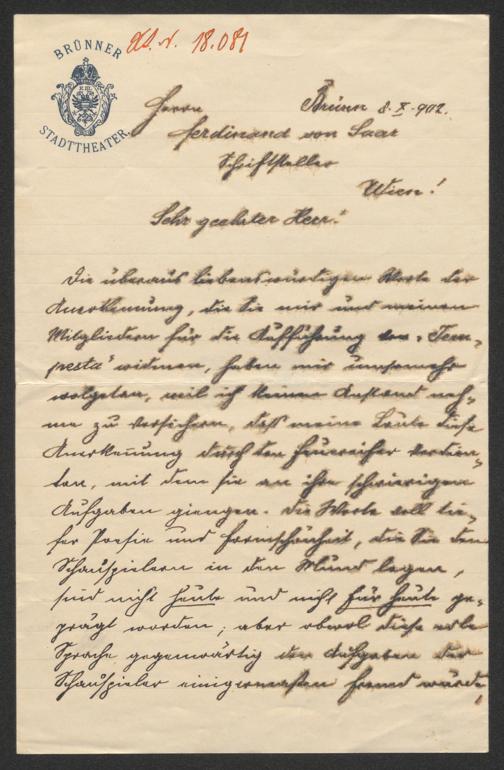 BRÜNNER
STADTTHEATER.
18.081
Herrn Brünn 8. X. 902.
Ferdinand von Saar
Schriftsteller
Wien!
Sehr geehrter Herr!
Die überaus liebenswürdigen Worte der
Anerkennung, die Sie mir und meinen
Mitgliedern für die Aufführung der „Tem-
pesta" widmen, haben mir umsomehr
wolgetan, weil ich keinen Anstand neh-
me zu versichern, daß meine Leute diese
Anerkennung durch den Feuereifer verdien-
ten, mit dem sie an ihre schwierigen
Aufgaben giengen. Die Worte voll tie-
fer Poesie und Formschönheit, die Sie den
Schauspielern in den Mund legen,
sind nicht heute und nicht für heute ge-
prägt worden; aber obwol diese edle
Sprache gegenwärtig den Aufgaben der
Schauspieler einigermaßen fremd wurde